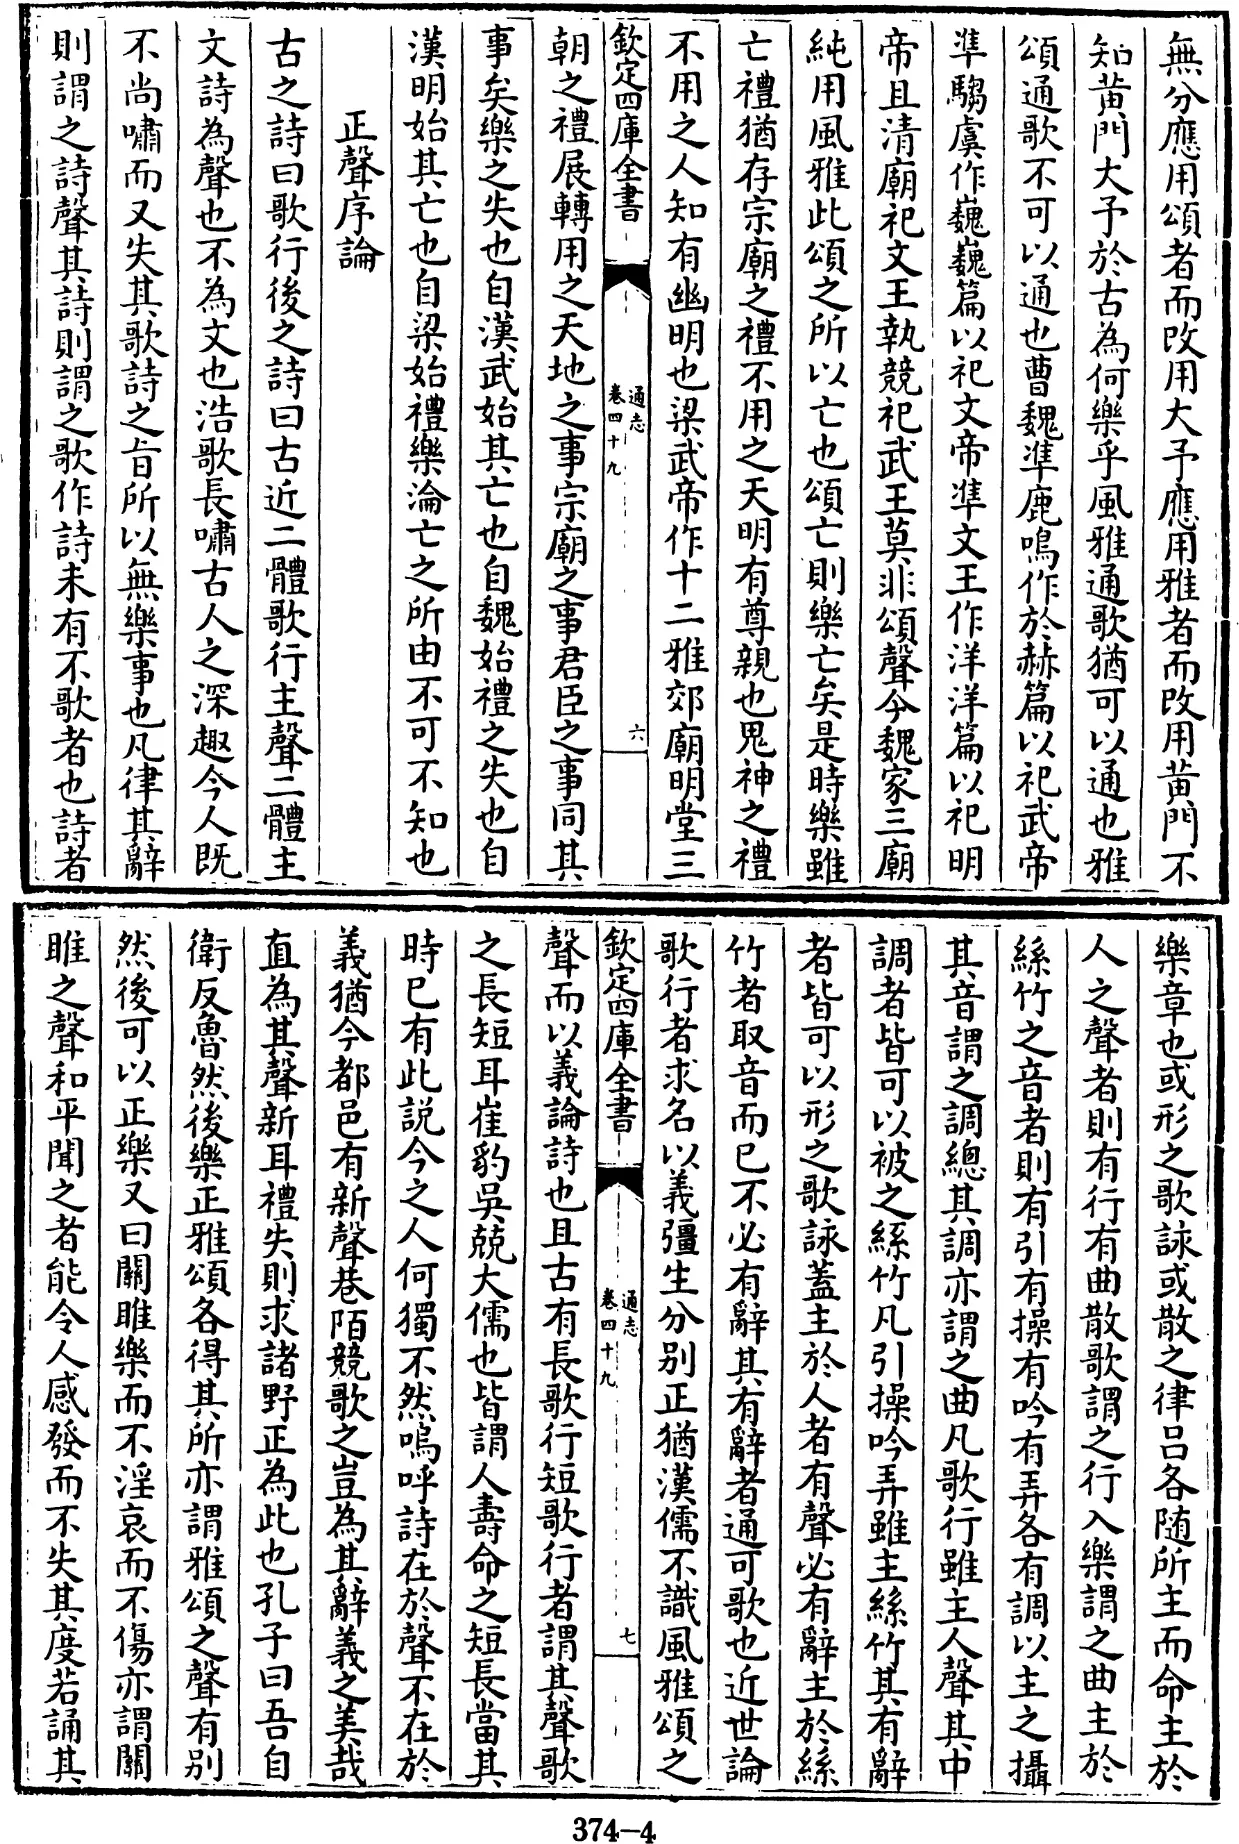 無分應用頌者而改用大予應用雅者而改用黄門不
知黄門大予於古為何樂乎風雅通歌猶可以通也雅
頌通歌不可以通也曹魏凖鹿鳴作於赫篇以祀武帝
凖騶虞作巍巍篇以祀文帝凖文王作洋洋篇以祀明
帝且清廟祀文王執競祀武王莫非頌聲今魏家三廟
純用風雅此頌之所以亡也頌亡則樂亡矣是時樂雖
亡禮猶存宗廟之禮不用之天明有尊親也鬼神之禮
不用之人知有幽明也梁武帝作十二雅郊廟明堂三
欽定四庫全書
通志
卷四十九
六
朝之禮展轉用之天地之事宗廟之事君臣之事同其
事矣樂之失也自漢武始其亡也自魏始禮之失也自
漢明始其亡也自梁始禮樂淪亡之所由不可不知也
正聲序論
古之詩曰歌行後之詩曰古近二體歌行主聲二體主
文詩為聲也不為文也浩歌長嘯古人之深趣今人既
不尚嘯而又失其歌詩之旨所以無樂事也凡律其辭
則謂之詩聲其詩則謂之歌作詩未有不歌者也詩者
樂章也或形之歌詠或散之律呂各随所主而命主於
人之聲者則有行有曲散歌謂之行入樂謂之曲主於
絲竹之音者則有引有操有吟有弄各有調以主之攝
其音謂之調總其調亦謂之曲凡歌行雖主人聲其中
調者皆可以被之絲竹凡引操吟弄雖主絲竹其有辭
者皆可以形之歌詠蓋主於人者有聲必有辭主於絲
竹者取音而已不必有辭其有辭者通可歌也近世論
歌行者求名以義彊生分别正猶漢儒不識風雅頌之
欽定四庫全書
通志
卷四十九
七
聲而以義論詩也且古有長歌行短歌行者謂其聲歌
之長短耳崔豹吳兢大儒也皆謂人壽命之短長當其
時已有此説今之人何獨不然嗚呼詩在於聲不在於
義猶今都邑有新聲巷陌競歌之豈為其辭義之美哉
直為其聲新耳禮失則求諸野正為此也孔子曰吾自
衛反魯然後樂正雅頌各得其所亦謂雅頌之聲有别
然後可以正樂又曰關雎樂而不淫哀而不傷亦謂關
雎之聲和平聞之者能令人感發而不失其度若誦其
374-4